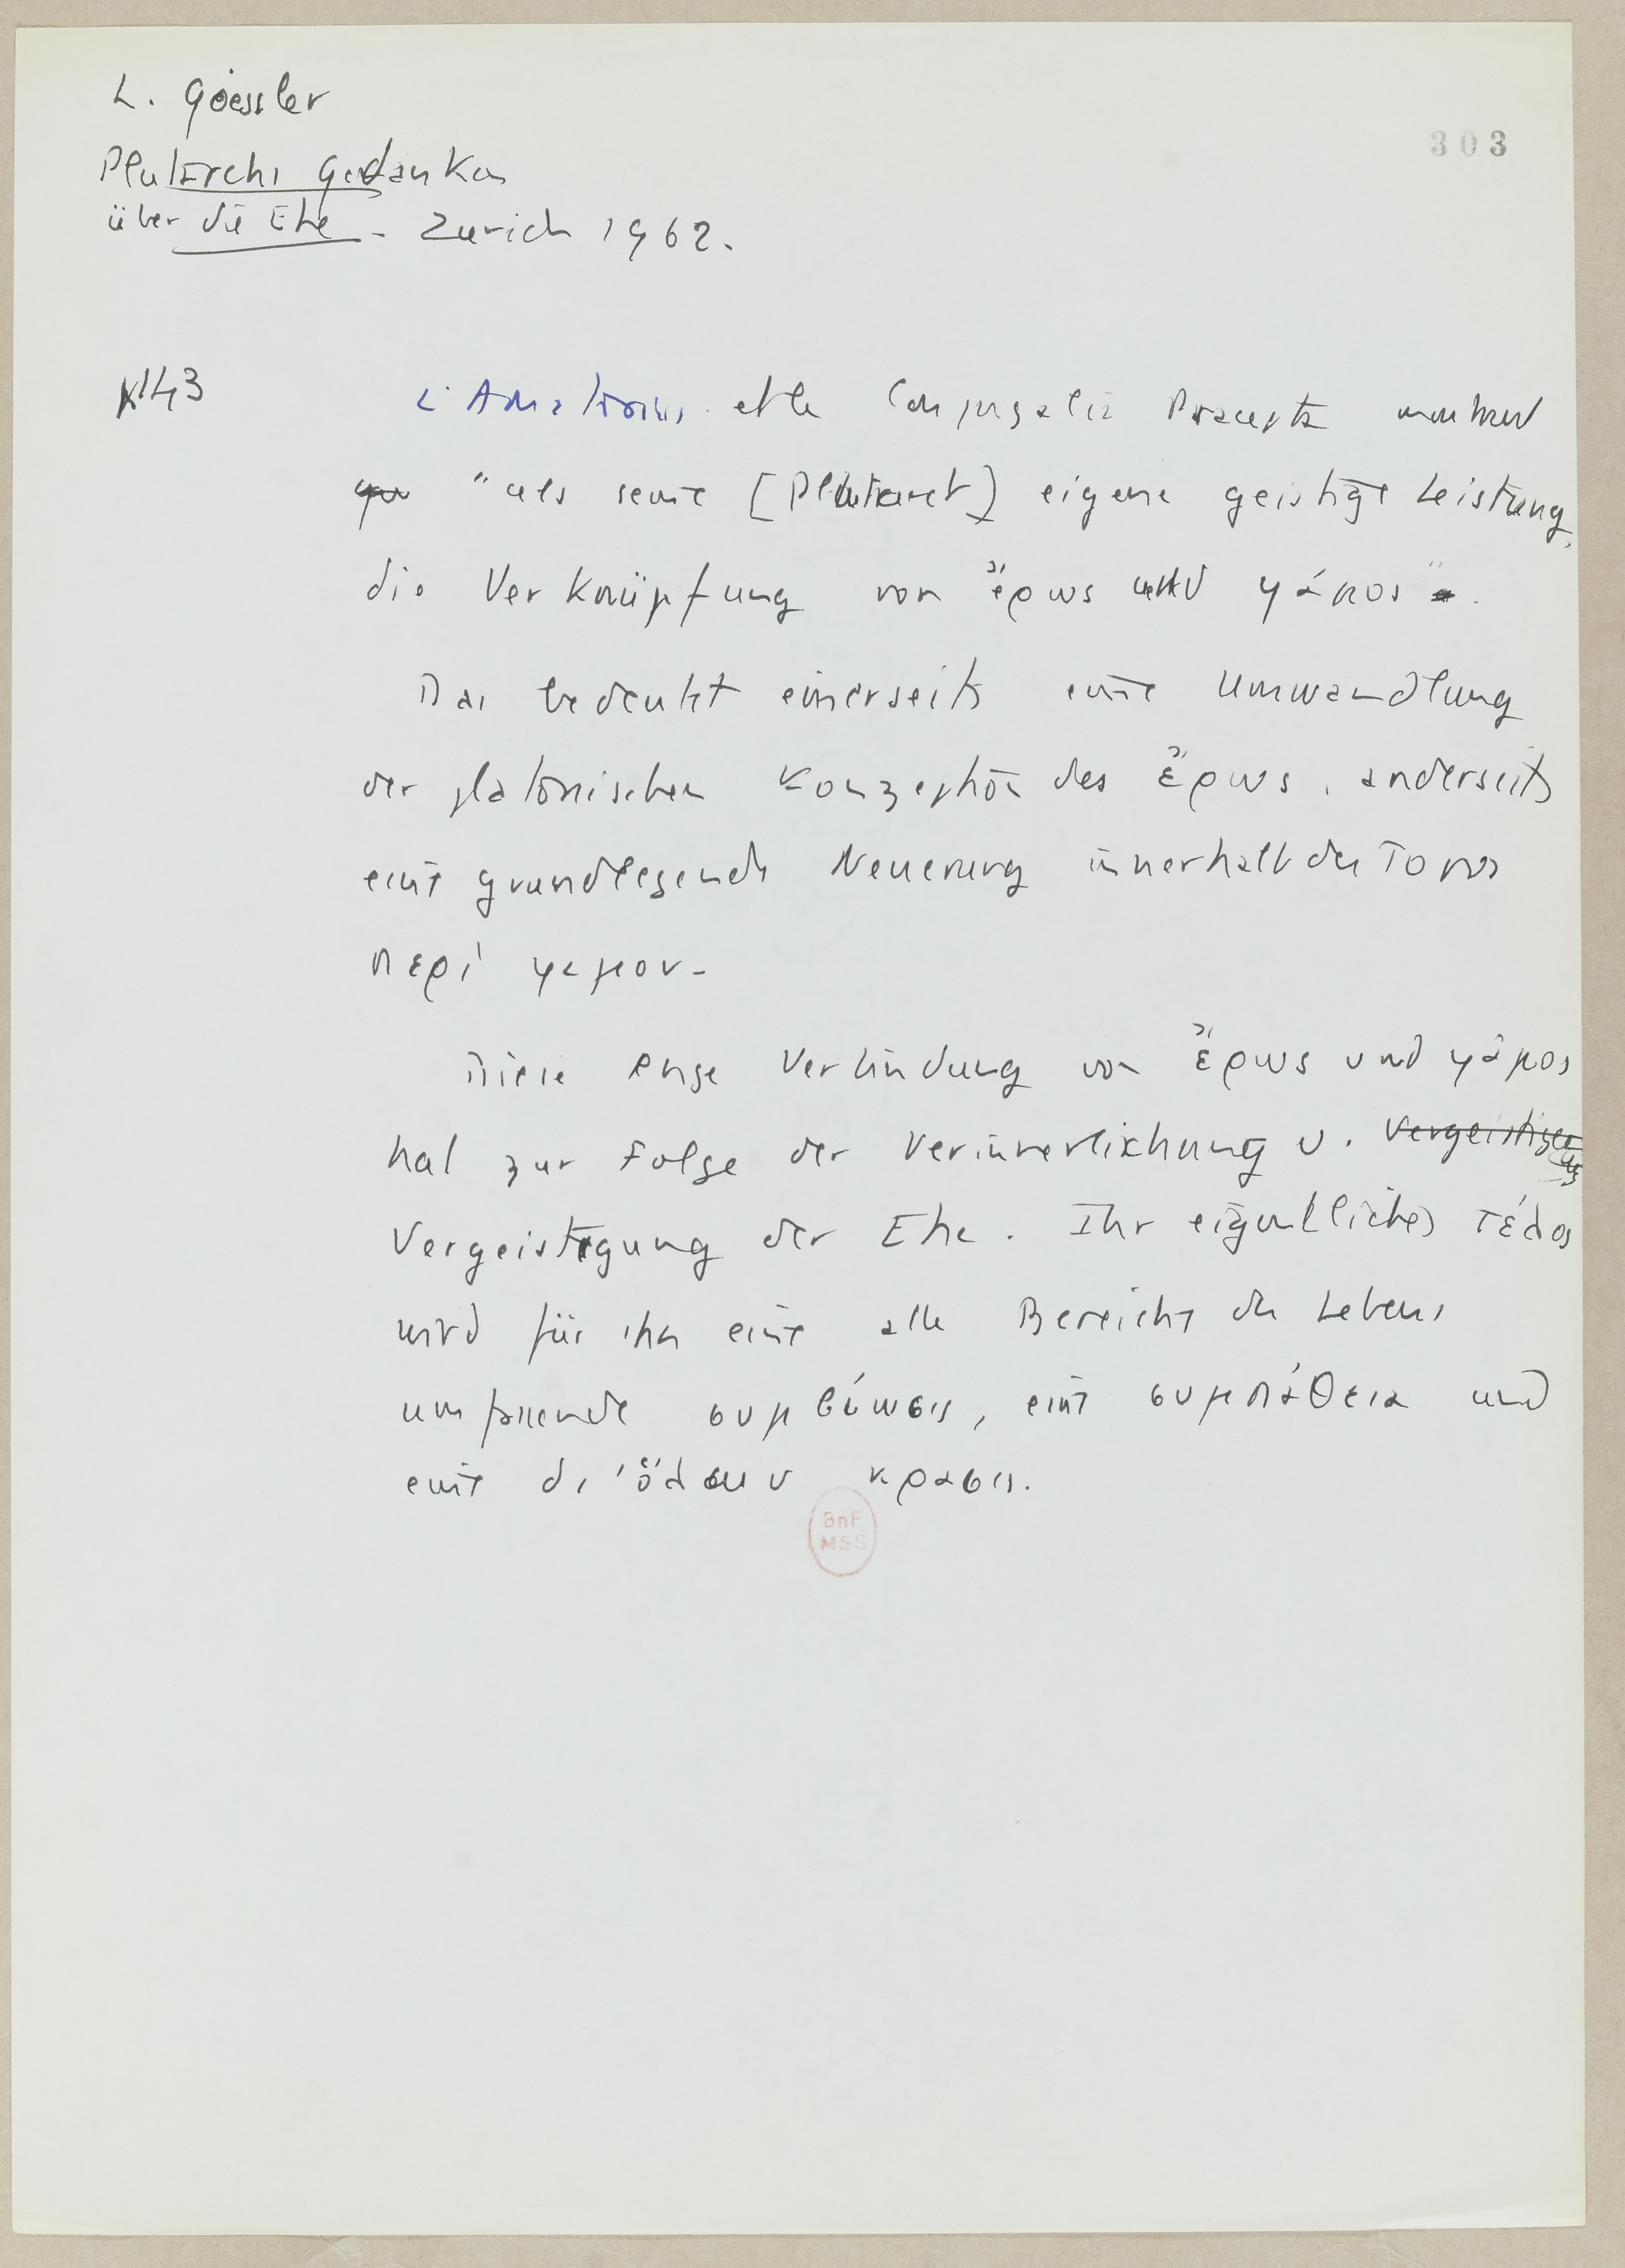 L. Goessler
303
Plutarchs Gedanken
über die Ehe - Zurich 1962.
143
L'Amatorius et le Conjugalia Praecepta montrent
que "als seine [Plutarch] eigene geistige Leistung,
die Verknüpfung von ἔρως und γάμος".
Das bedeutet einerseits eine Umwandlung
der platonischen Konzeption des ἔρως, anderseits
eine grundlegende Neuerung innerhalb des Topos
περί γαμου -
Diese enge Verbindung von ἔρως und γάμος
hat zur Folge der Verinnerlichung u. Vergeistigung
Vergeistigung der Ehe. Ihr eigentliches τέλος
wird für ihn eine alle Bereiche des Lebens
umfassende συμβίωσις, eine συμπάθεια und
eine δι'ὅλων κρασις.
BnF
MSS